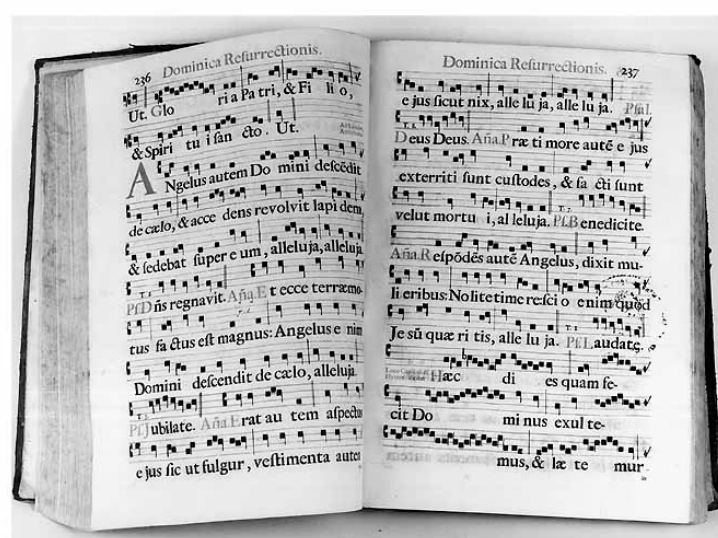 236 Dominica Resurrectionis.
Ut. Glo ri a Pa tri, & Fi li o,
& Spiri tu i san cto. Ut.
A Ngelus autem Do mini descēdit
de cælo, & acce dens revolvit lapi dem,
& sedebat super e um, alleluja, alleluja.
Ps.D ñs regnavit. Aña. E t ecce terræmo-
tus fa ctus est magnus: Angelus e nim
Domini descendit de cælo, alleluja.
Ps.J ubilate. Aña. E rat au tem aspectus
e jus sic ut fulgur, vestimenta autem
Dominica Resurrectionis. 237
e jus sicut nix, alle lu ja, alle lu ja. Psal.
Deus Deus. Aña. P ræ ti more autē e jus
exterriti sunt custodes, & fa cti sunt
velut mortu i, al leluja. Ps. B enedicite.
Aña. R espōdēs autē Angelus, dixit mu-
li eribus: Nolite time re: sci o enim quod
Je sū quæ ri tis, alle lu ja. Ps. L audate.
Hæc di es quam fe-
cit Do mi nus exul te-
mus, & læ te mur